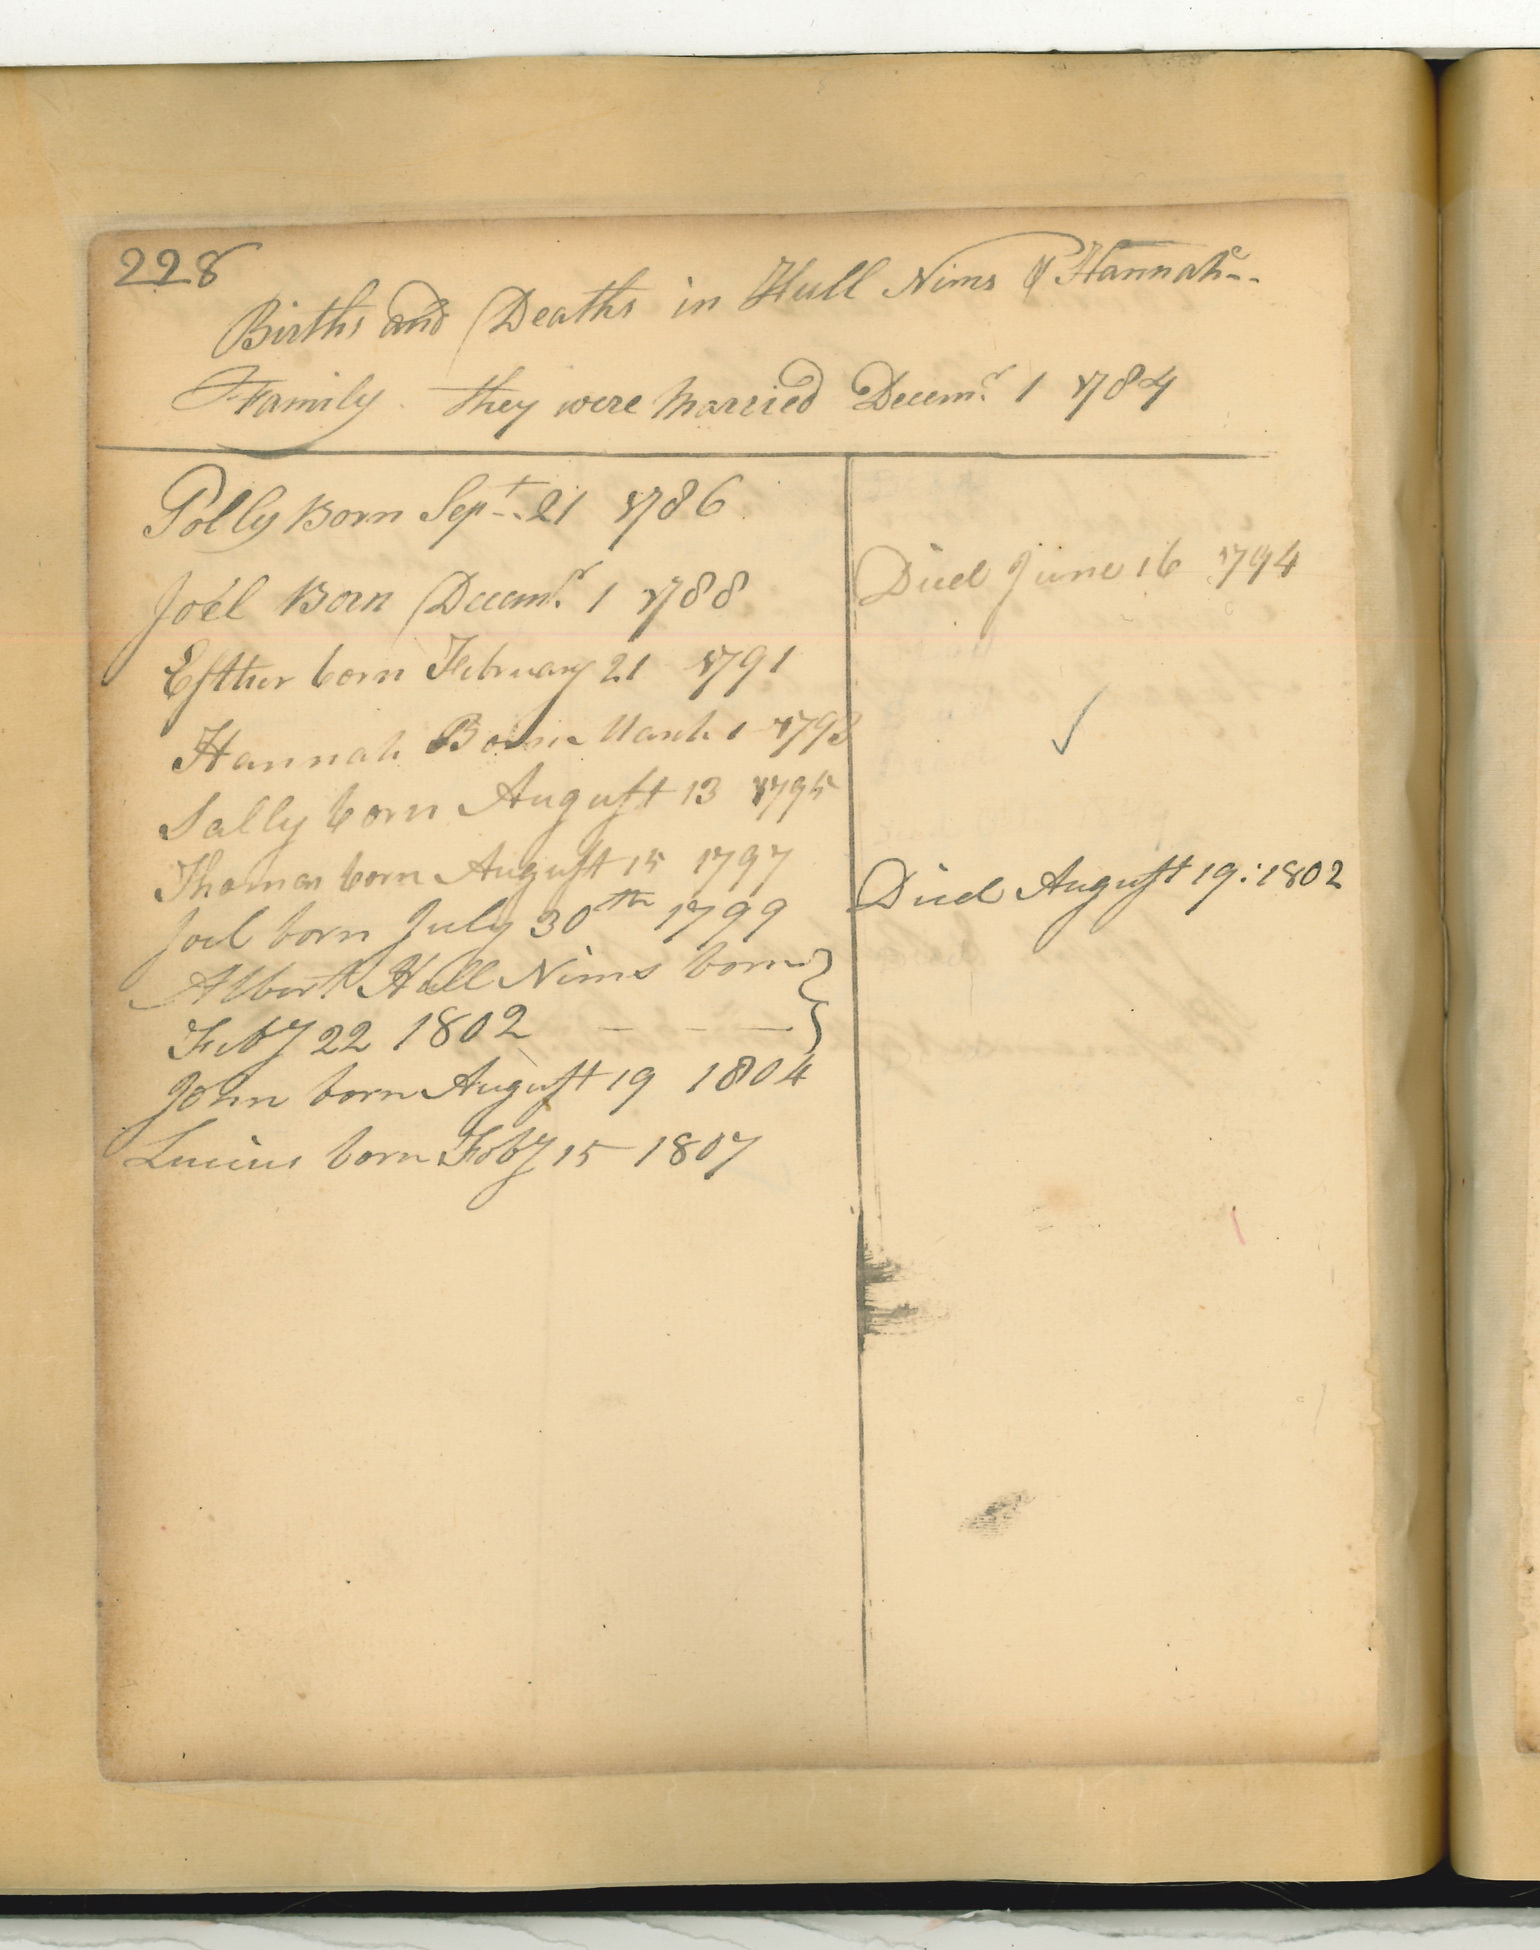 228
Births and Deaths in Hull Nims & Hannahs
Family. they were Married Decemr. 1 1784
Polly Born Sept. 21 1786
Joel Born Decemr. 1 1788 Died June 16 1794
Esther born February 21 1791
Hannah Born March 1 1793
Sally born August 13 1795
Thomas born August 15 1797 Died August 19: 1802
Joel born July 30th 1799
Albert Hull Nims born
Feby 22 1802
John born August 19 1804
Lucius born Feby 15 1807